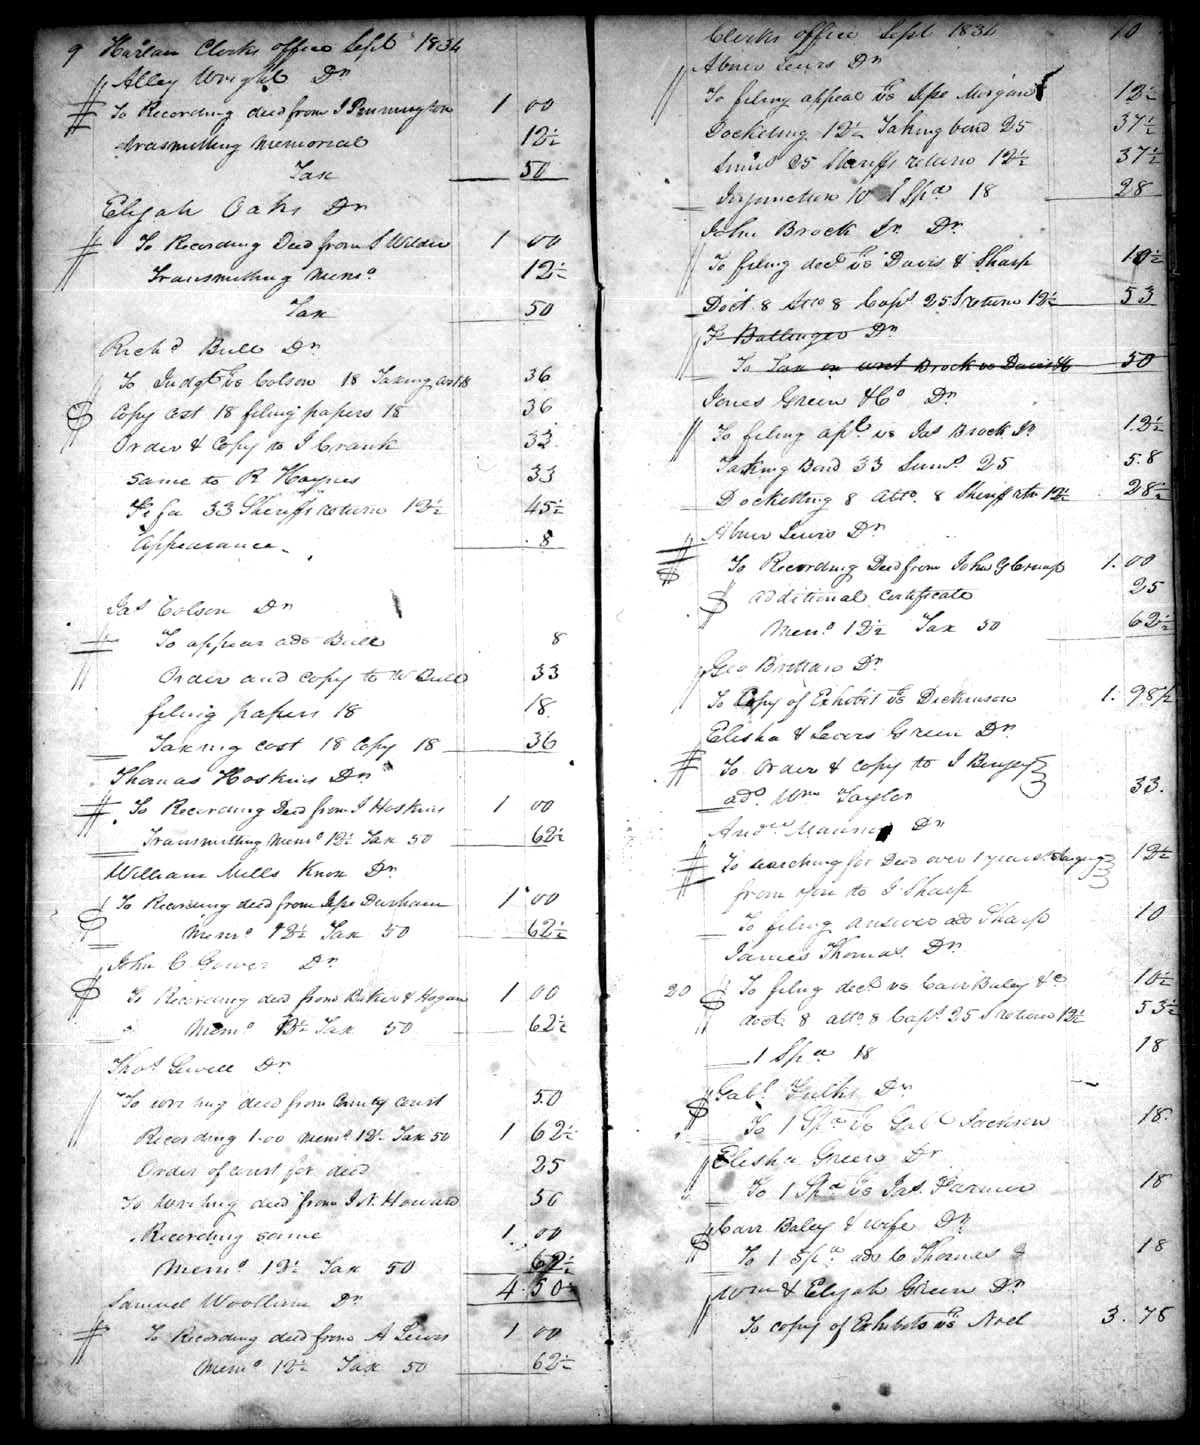 9 Harlan Clerks office Sept 1834
Alley Wright Dr
To Recording deed from J Pennington 1 00
Trasmitting memorial 12½
Tax 50
Elijah Oaks Dr
To Recording Deed from S Wilder 1 00
Transmitting Memo 12½
Tax 50
Richd Bull Dr
To Judgt vs Colson 18 Taxing cost 18 36
Copy cost 18 filing papers 18 36
Order & Copy to J Crank 33
Same to R Haynes 33
Fi fa 33 Sheriffs return 12½ 45½
Appearance 8
Jas Colson Dr
To appear ads Bull 8
Order and copy to W Bull 33
filing papers 18 18
Taxing cost 18 Copy 18 36
Thomas Hoskins Dr
To Recording Deed from J Hoskins 1 00
Transmitting Memo 12½ Tax 50 62½
William Mills Knox Dr
To Recording deed from Jese Durham 1 00
Memo 12½ Tax 50 62½
John C Gower Dr
To Recording deed from Baker & Hogan 1 00
Memo 12½ Tax 50 62½
Thos Sewell Dr
To writing deed from County court 50
Recording 1.00 Memo 12½ Tax 50 1 62½
Order of court for deed 25
To writing deed from J N Howard 50
Recording same 1 00
Memo 12½ Tax 50 62½
4.50½
Samuel Woollum Dr
To Recording deed from A Lewis 1 00
Memo 12½ Tax 50 62½
Clerks office Sept 1834 10
Abner Lewis Dr
To filing appeal vs Jese Morgan 12½
Docketing 12½ Taking bond 25 37½
Sums 25 Sheriffs return 12½ 37½
Injunction 10 1 Spa 18 28
John Brock Sr Dr
To filing decl vs Davis & Sharp 10½
Doct 8 Atto 8 Caps 25 S return 12½ 53
F Ballinger Dr
To Tax on writ Brock vs Davis &c 50
Jones Green & Co Dr
To filing apl vs Jas Brock Jr 12½
Taking Bond 33 Sums 25 58
Docketting 8 Atto 8 Sheriff rtn 12½ 28½
Abner Lewis Dr
To Recording Deed from John G Crump 1.00
additional Certificate 25
Memo 12½ Tax 50 62½
Geo Brittain Dr
To Copy of Exhibit vs Dickinson 1.98½
Elisha & Lewis Green Dr
To Order & copy to J Benge
ads Wm Taylor 33
Andrew Dr
To searching for Deed over 1 years 12½
from to J Sharp
To filing answer ads Sharp 10
James Thomas Dr
20 To filing decl vs Carr Baley &c 10½
doct 8 atto 8 Caps 25 S return 12½ 53½
1 Spa 18 18
Gabl Fulks Dr
To 1 Spa vs Gabl Jackson 18
Elisha Green Dr
To 1 Spa vs Jas Farmer 18
Carr Baley & wife Dr
To 1 Spa ads C Thomas 18
Wm & Elijah Green Dr
To copy of Exhibits vs Noel 3.78